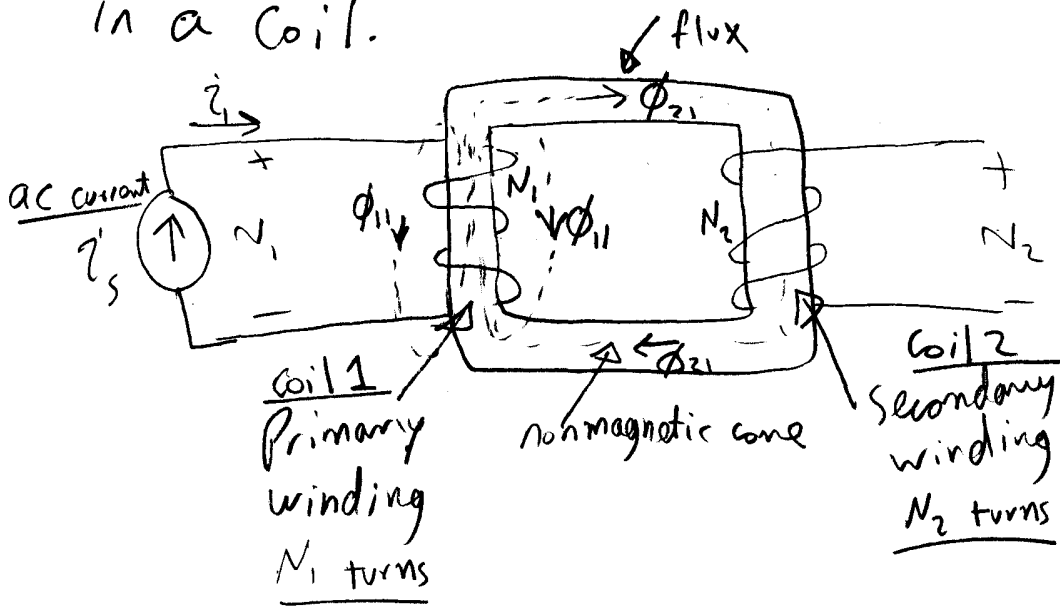 in a coil.
flux
i₁
ϕ₂₁
+
+
ac current
iₛ
N₁
ϕ₁₁
N₁
ϕ₁₁
N₂
N₂
−
−
ϕ₂₁
coil 1
Primary
winding
N₁ turns
nonmagnetic core
coil 2
Secondary
winding
N₂ turns